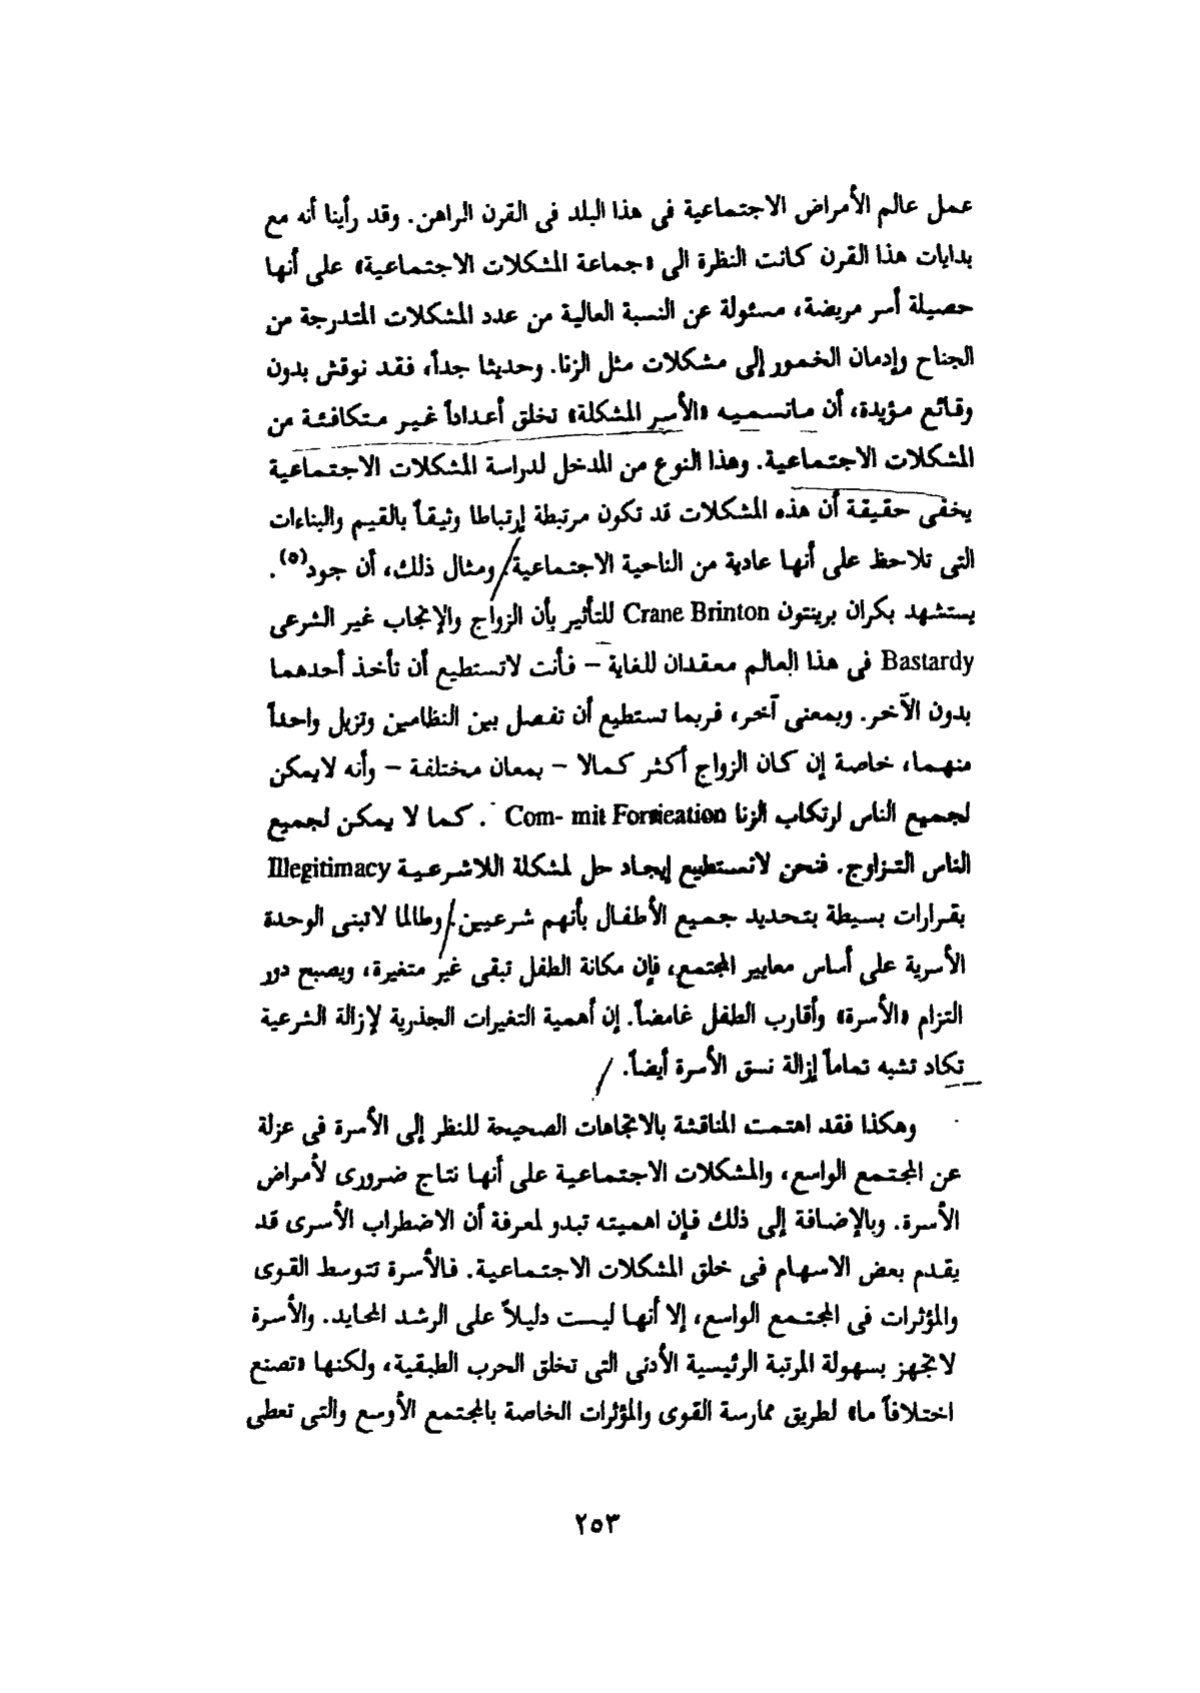 عمل عالم الأمراض الاجتماعية فى هذا البلد فى القرن الراهن. وقد رأينا أنه مع
بدايات هذا القرن كانت النظرة الى «جماعة المشكلات الاجتماعية» على أنها
حصيلة أسر مريضة، مسئولة عن النسبة العالية من عدد المشكلات المتدرجة من
الجناح وإدمان الخمور إلى مشكلات مثل الزنا. وحديثا جداً، فقد نوقش بدون
وقائع مؤيدة، أن مانسميه «الأسر المشكلة» تخلق أعداداً غير متكافئة من
المشكلات الاجتماعية. وهذا النوع من المدخل لدراسة المشكلات الاجتماعية
يخفى حقيقة أن هذه المشكلات قد تكون مرتبطة إرتباطا وثيقاً بالقيم والبناءات
التى تلاحظ على أنها عادية من الناحية الاجتماعية. ومثال ذلك، أن جود(٥).
يستشهد بكران برينتون Crane Brinton للتأثير بأن الزواج والإنجاب غير الشرعى
Bastardy فى هذا العالم معقدان للغاية – فأنت لاتستطيع أن تأخذ أحدهما
بدون الآخر. وبمعنى آخر، فربما تستطيع أن تفصل بين النظامين وتزيل واحداً
منهما، خاصة إن كان الزواج أكثر كمالا – بمعان مختلفة – وأنه لايمكن
لجميع الناس لارتكاب الزنا Com- mit Fornieation . كما لا يمكن لجميع
الناس التزاوج. فنحن لانستطيع إيجاد حل لمشكلة اللاشرعية Illegitimacy
بقرارات بسيطة بتحديد جميع الأطفال بأنهم شرعيين. وطالما لاتبنى الوحدة
الأسرية على أساس معايير المجتمع، فإن مكانة الطفل تبقى غير متغيرة، ويصبح دور
التزام «الأسرة» وأقارب الطفل غامضاً. إن أهمية التغيرات الجذرية لإزالة الشرعية
تكاد تشبه تماماً إزالة نسق الأسرة أيضاً.
وهكذا فقد اهتمت المناقشة بالاتجاهات الصحيحة للنظر إلى الأسرة فى عزلة
عن المجتمع الواسع، والمشكلات الاجتماعية على أنها نتاج ضرورى لأمراض
الأسرة. وبالإضافة إلى ذلك فإن اهميته تبدو لمعرفة أن الاضطراب الأسرى قد
يقدم بعض الاسهام فى خلق المشكلات الاجتماعية. فالأسرة تتوسط القوى
والمؤثرات فى المجتمع الواسع، إلا أنها ليست دليلاً على الرشد المحايد. والأسرة
لاتجهز بسهولة المرتبة الرئيسية الأدنى التى تخلق الحرب الطبقية، ولكنها «تصنع
اختلافاً ما» لطريق ممارسة القوى والمؤثرات الخاصة بالمجتمع الأوسع والتى تعطى
٢٥٣